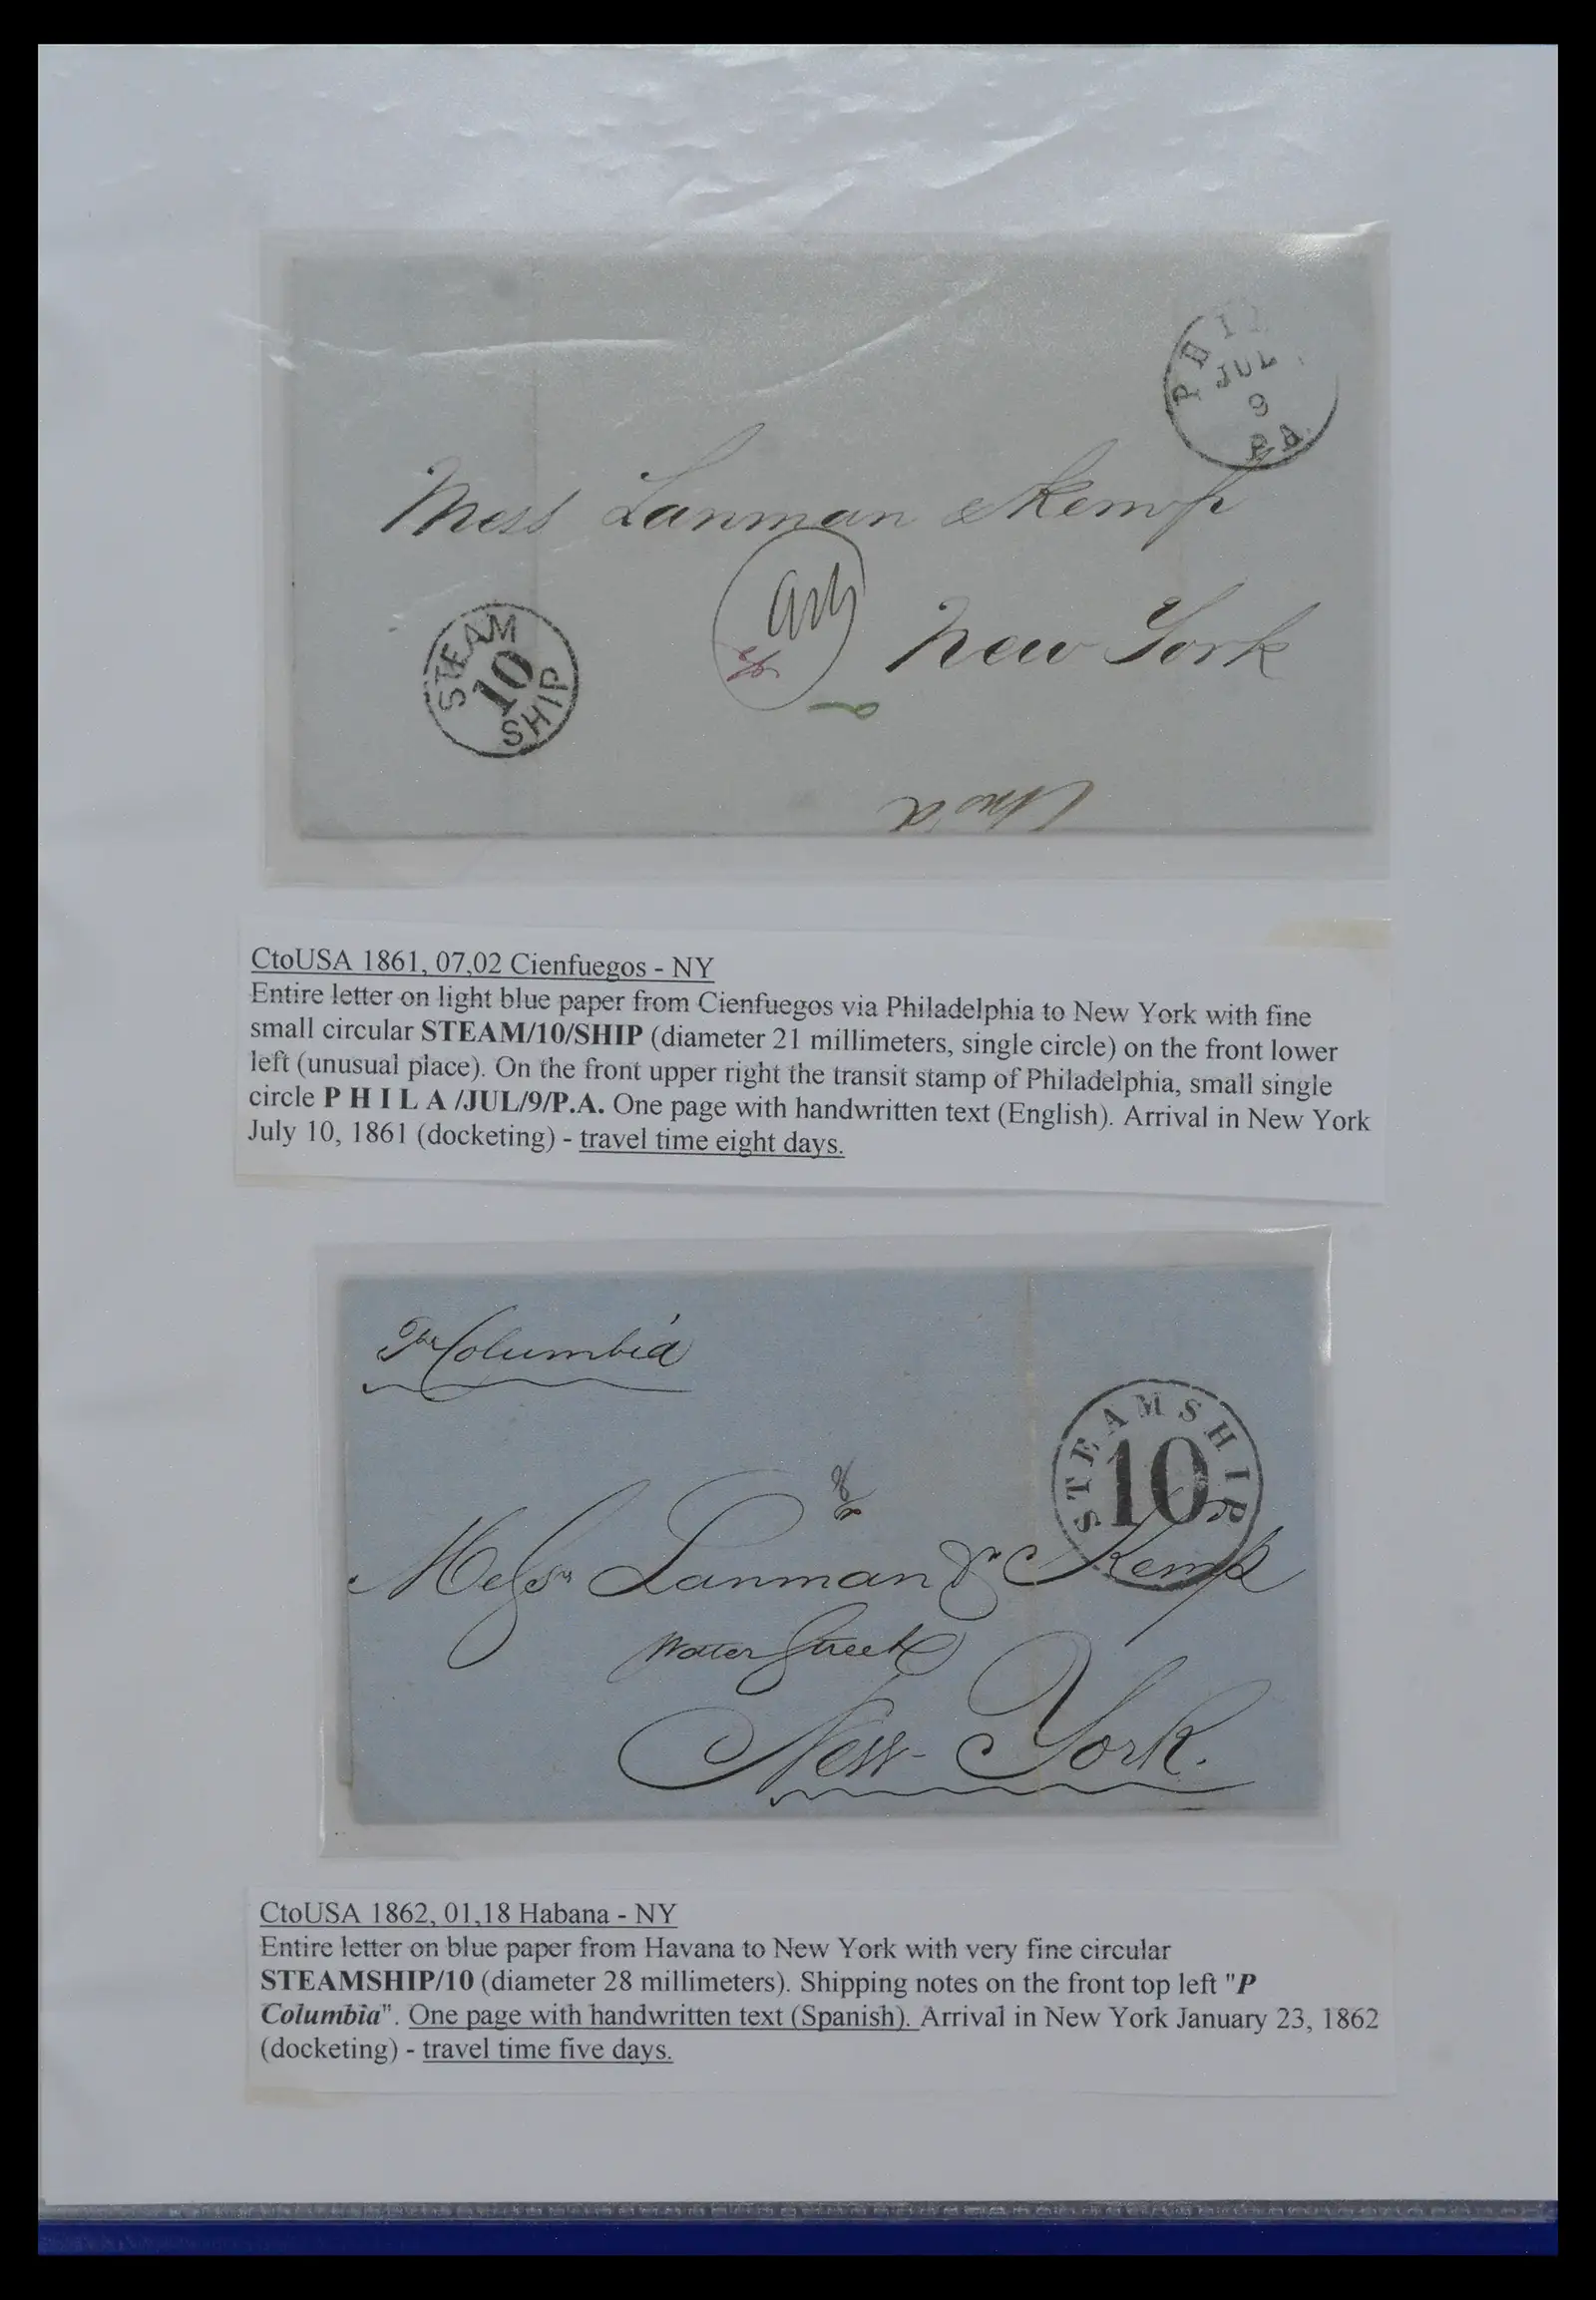 PHIL
JUL
9
PA.
Mess Lanman & Kemp
New York
STEAM
10
SHIP
CtoUSA 1861, 07,02 Cienfuegos - NY
Entire letter on light blue paper from Cienfuegos via Philadelphia to New York with fine
small circular STEAM/10/SHIP (diameter 21 millimeters, single circle) on the front lower
left (unusual place). On the front upper right the transit stamp of Philadelphia, small single
circle P H I L A /JUL/9/P.A. One page with handwritten text (English). Arrival in New York
July 10, 1861 (docketing) - travel time eight days.
Columbia
STEAMSHIP
10
Messrs Lanman & Kemp
Water Street
New York.
CtoUSA 1862, 01,18 Habana - NY
Entire letter on blue paper from Havana to New York with very fine circular
STEAMSHIP/10 (diameter 28 millimeters). Shipping notes on the front top left "P
Columbia". One page with handwritten text (Spanish). Arrival in New York January 23, 1862
(docketing) - travel time five days.